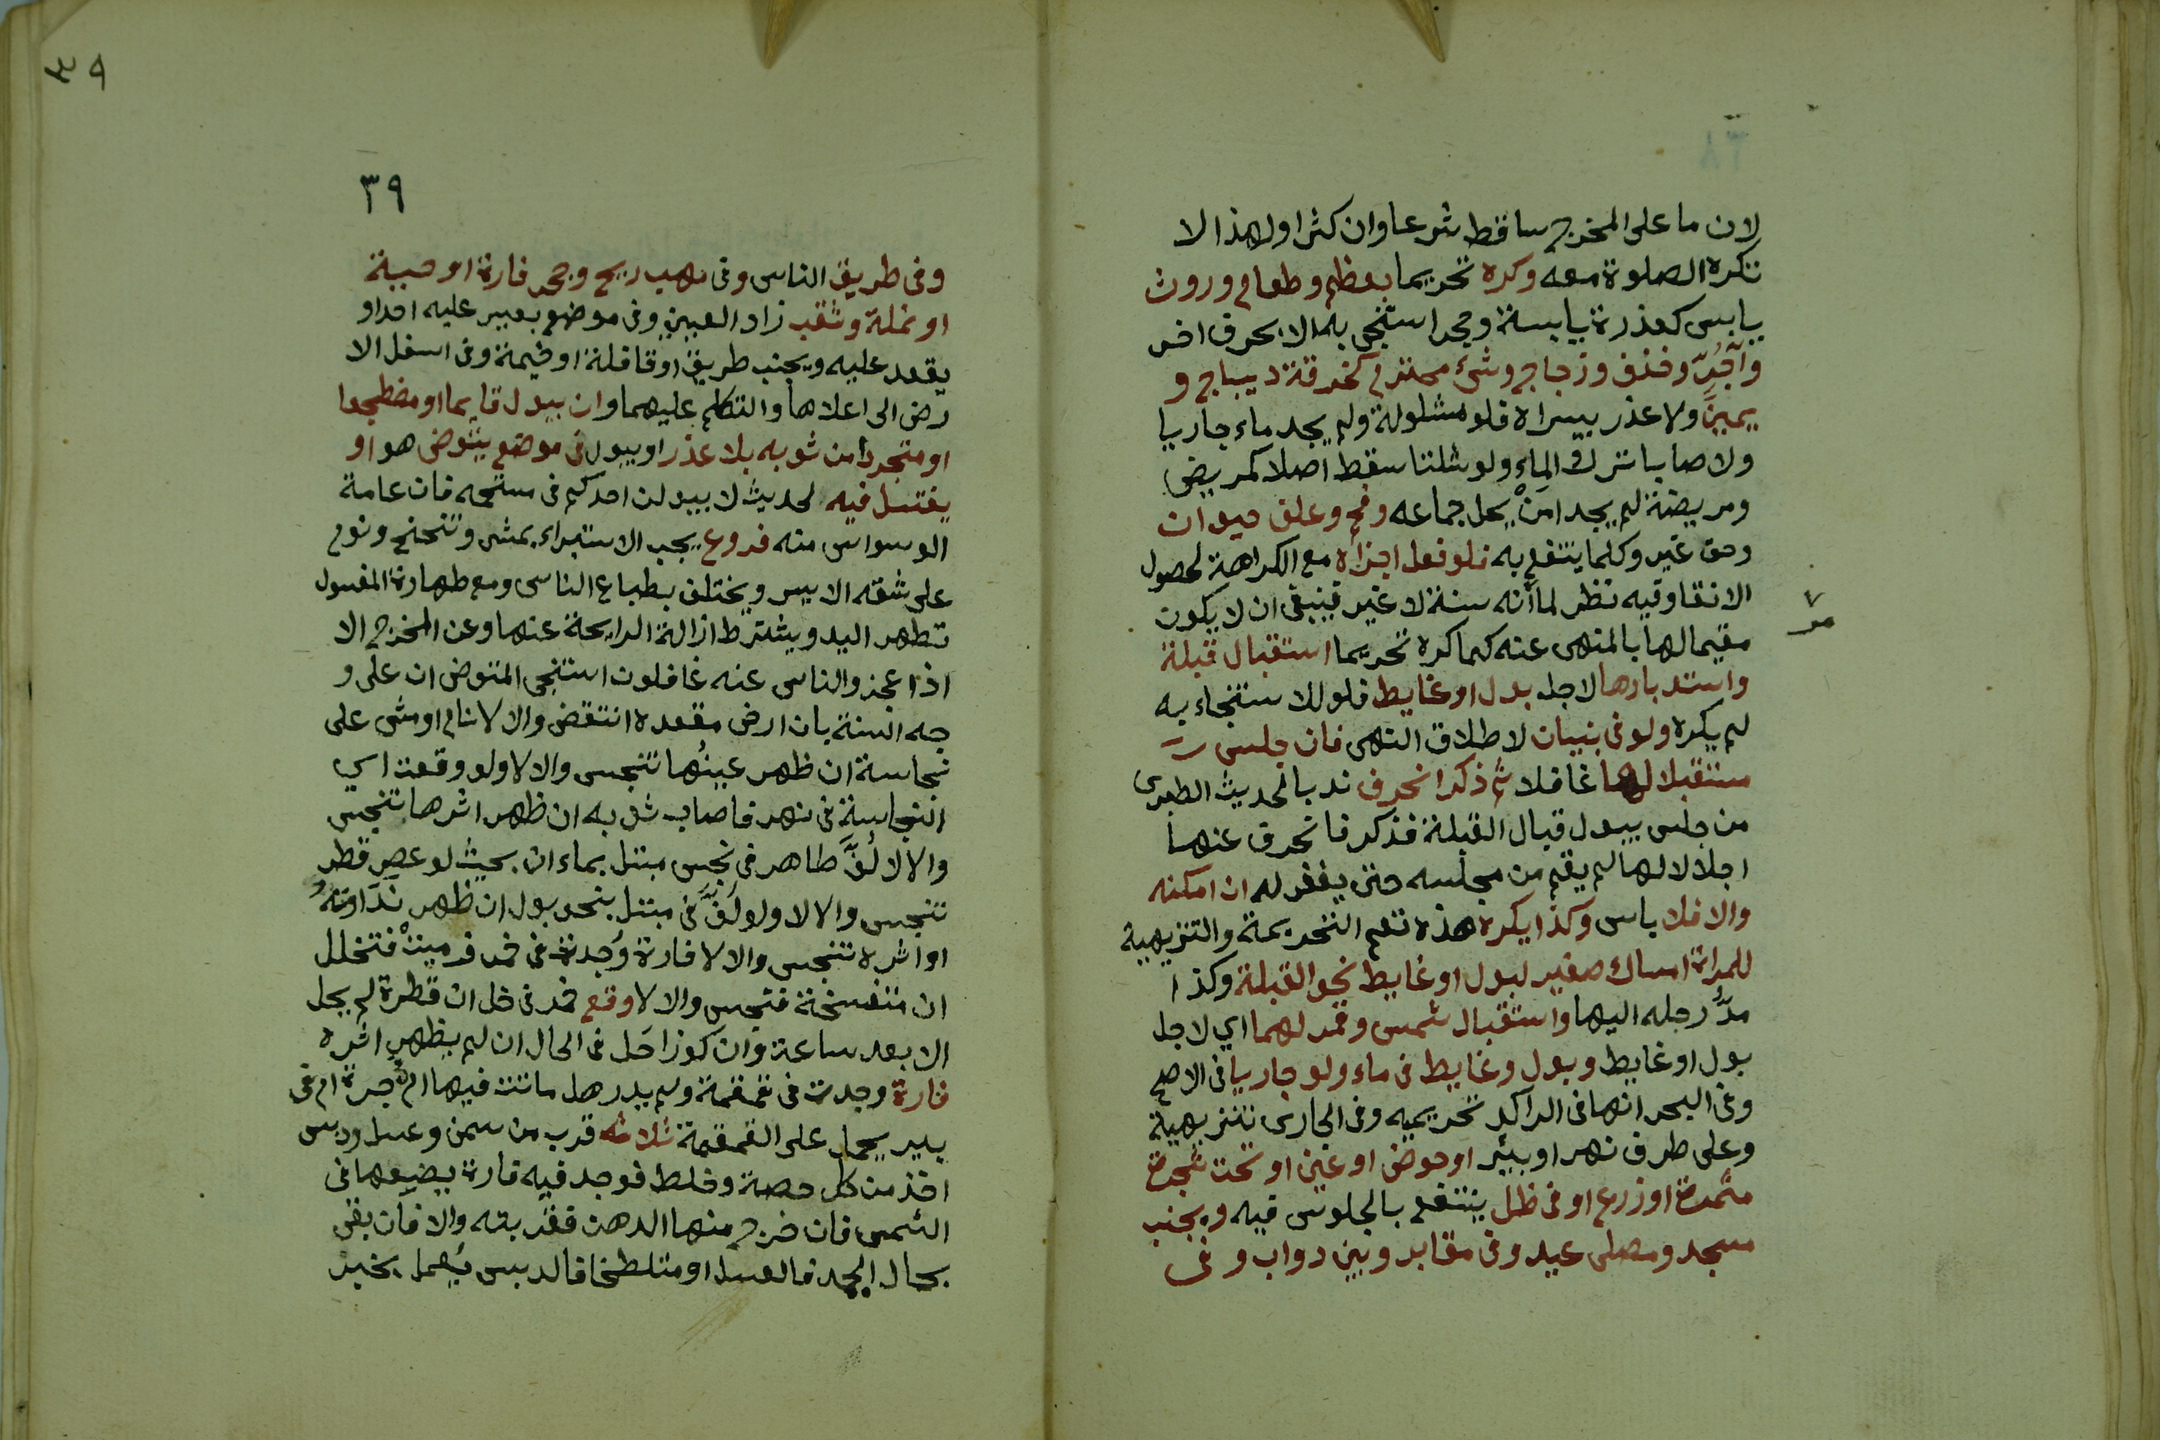 لان ما على المخرج ساقط شرعا وان كثر ولهذا لا
تكره الصلوة معه وكره تحريما بعظم وطعام وروث
يابس كعذرة يابسة وحجر استنجى به الا بحرف اخر
وآجُرّ وخذف وزجاج وشئ محترم كخرقة ديباج و
يمين ولا عذر بيسراه فلو مشلولة ولم يجد ماء جاريا
ولا صابا ترك الماء ولو شلتا سقط اصلا كمريض
ومريضة لم يجد امَنْ يحل جماعه وفحم وعلف حيوان
وحق غير وكلما ينتفع به فلو فعل اجزأه مع الكراهة لحصول
الانقا وفيه نظر لما أنه سنة لا غير فينبغى ان لا يكون
مقيما لها بالمنهى عنه كما كره تحريما استقبال قبلة
واستدبارها لاجل بول او غايط فلو للاستنجاء به
لم يكره ولو فى بنيان لاطلاق النهى فان جلس
مستقبلا لها غافلا ثم ذكر انحرف ندبا لحديث الطبرى
من جلس يبول قبال القبلة فذكر فانحرف عنها
اجلالا لها لم يقم من مجلسه حتى يغفر له ان امكنه
والا فلا باس وكذا يكره هذه تعم التحريمة والتنزيهية
للمراة امساك صغير لبول او غايط نحو القبلة وكذا
مدّ رجله اليها واستقبال شمس وقمر لهما اي لاجل
بول او غايط وبول وغايط فى ماء ولو جاريا فى الاصح
وفى البحر انها فى الراكد تحريميه وفى الجارى تنزيهية
وعلى طرف نهر او بيئر او حوض او عين او تحت شجرة
مثمرة او زرع او فى ظل ينتفع بالجلوس فيه وبجنب
مسجد ومصلى عيد وفى مقابر وبين دواب وفى
٣٩
٣٩
وفى طريق الناس وفى مهب ريح وجحر فارة او حيية
او نملة وثقب زاد العينى وفى موضع يعبر عليه احد او
يقعد عليه وبجنب طريق او قافلة او خيمة وفى اسفل الا
رض الى اعلاها والتكلم عليهما وان يبول قايما او مضطجعا
او متجردا من ثوبه بلا عذر او يبول فى موضع يتوضى هو او
يغتسل فيه لحديث لا يبولن احدكم فى مستحمه فان عامة
الوسواس منه فروع يجب الاستبراء بمشى وتنحنح ونوم
على شقه الايسر ويختلف بطباع الناس ومع طهارة المغسول
تطهر اليد ويشترط ازالة الرايحة عنها وعن المخرج الا
اذا عجز والناس عنه غافلون استنجى المتوضى ان على و
جه السنة بان ارخى مقعده انتقض والا لا نام او مشى على
نجاسة ان ظهر عينُها تنجس والا لا ولو وقعت اي
النجاسة فى نهر فاصاب ثوبه ان ظهر اثرها تنجس
والا لا لُفَّ طاهر فى نجس مبتل بماء ان بحيث لو عصر قطر
تنجس والا لا ولو لُفَّ فى مبتل بنحو بول ان ظهر نَدَاوتهُ
او اثره تنجس والا لا فارة وُجدت فى خمر فرميتْ فتخلل
ان متفسخة تنجس والا لا وقع خمر فى خل ان قطرة لم يحل
الا بعد ساعة وان كوزا حَل فى الحال ان لم يظهر اثره
فارة وجدت فى قمقمة ولم يدر هل ماتت فيها ام جرة ام فى
بير يحمل على القمقمة ثلاثه قرب من سمن وعسل ودبس
اخذ من كل حصة وخلط فوجد فيه فارة يضعها فى
الشمس فان خرج منها الدهن فقربته والا فان بقى
بحال الجمد فالعسل او متلطخا فالدبس يعمل بخبر